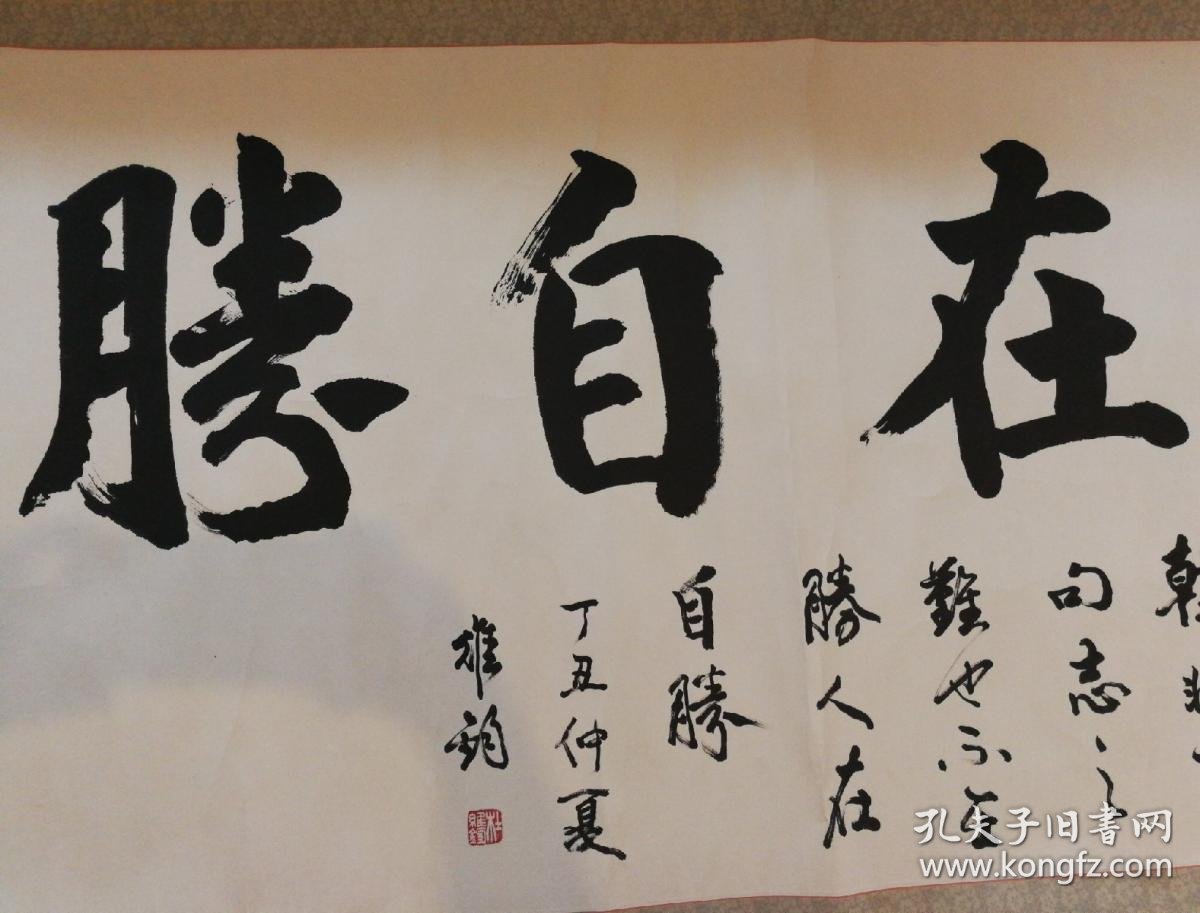 在自勝
韓非
句志之
難也不在
勝人在
自勝
丁丑仲夏
雄鈞
孔夫子旧書网
www.kongfz.com